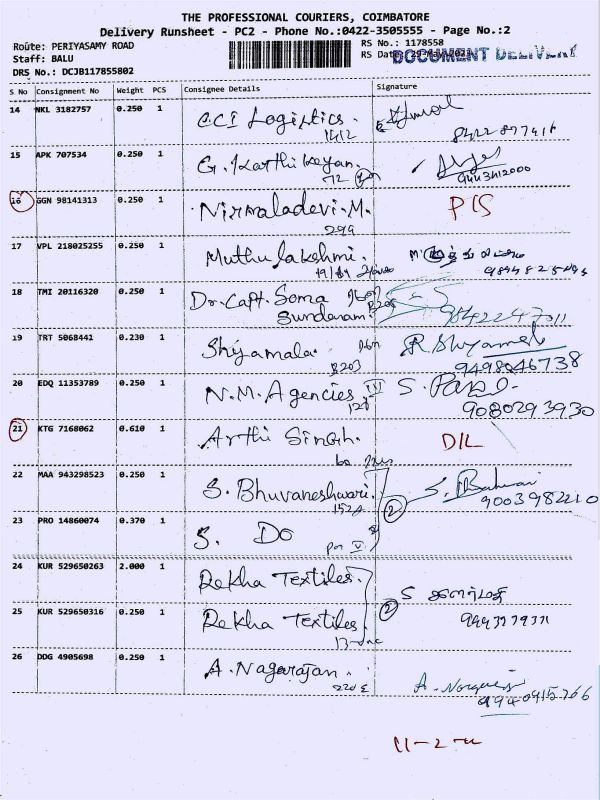 THE PROFESSIONAL COURIERS, COIMBATORE
Delivery Runsheet - PC2 - Phone No.:0422-3505555 - Page No.:2
Route: PERIYASAMY ROAD
RS No.: 1178558
Staff: BALU
RS Date: 29-May
DOCUMENT DELIVERY
DRS No.: DCJB117855802
S No Consignment No Weight PCS Consignee Details Signature
14 NKL 3182757 0.250 1 CCI Logistics.
1412
15 APK 707534 0.250 1 G. Karthikeyan.
72 9443412000
16 GGN 98141313 0.250 1 Nirmaladevi.M. PIS
299
17 VPL 218025255 0.250 1 Muthulakshmi.
18 TMI 20116320 0.250 1 Dr. Capt. Soma
Sundaram. B205 9842247011
19 TRT 5068441 0.230 1 Shyamala. R. Shyamala
B203 9498046738
20 EDQ 11353789 0.250 1 N.M. Agencies IV S.
128 9080293930
21 KTG 7168062 0.610 1 Arthi Singh. DIL
22 MAA 943298523 0.250 1 S. Bhuvaneshwari. S.
152A 2 9003982210
23 PRO 14860074 0.370 1 S. Do
24 KUR 529650263 2.000 1 Rekha Textiles. S
25 KUR 529650316 0.250 1 Rekha Textiles. 2 9443179311
26 DDG 4905698 0.250 1 A. Nagarajan.
220 A.
9940915766
11-2-